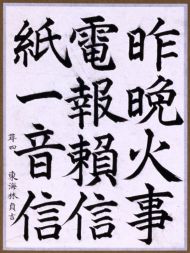 昨晚火事
電報賴信
紙一音信
尋四 東海林貞吉